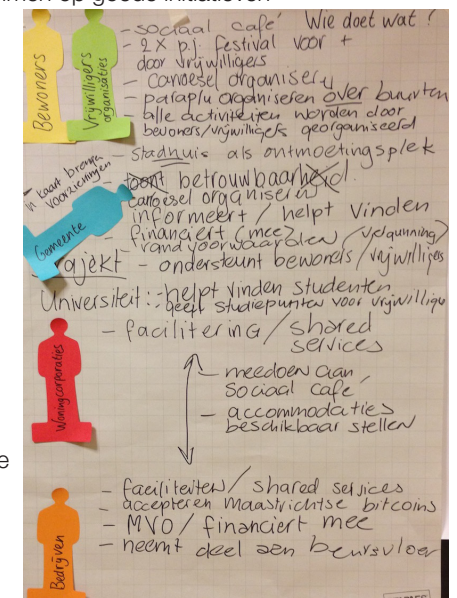 men op goede initiatieven
Wie doet wat?
Bewoners
Vrijwilligers
organisaties
- sociaal café
- 2 x p.j. festival voor +
door vrijwilligers
- carousel organiseren
- paraplu organiseren over buurten
- alle activiteiten worden door
bewoners/vrijwilligers georganiseerd
- stadhuis als ontmoetingsplek
in kaart brengen
voorzieningen
Gemeente
- toont betrouwbaarheid.
carousel organiseren
informeert / helpt vinden
- financiert (mee)
randvoorwaarden (vergunning)
Trajekt - ondersteunt bewoners / vrijwilligers
Universiteit: - helpt vinden studenten
- geeft studiepunten voor vrijwillige
Woningcorporaties
- facilitering / shared
services
- meedoen aan
sociaal café
- accommodaties
beschikbaar stellen
e
Bedrijven
- faciliteiten / shared services
- accepteren Maastrichtse bitcoins
- MVO / financiert mee
- neemt deel aan beursvloer